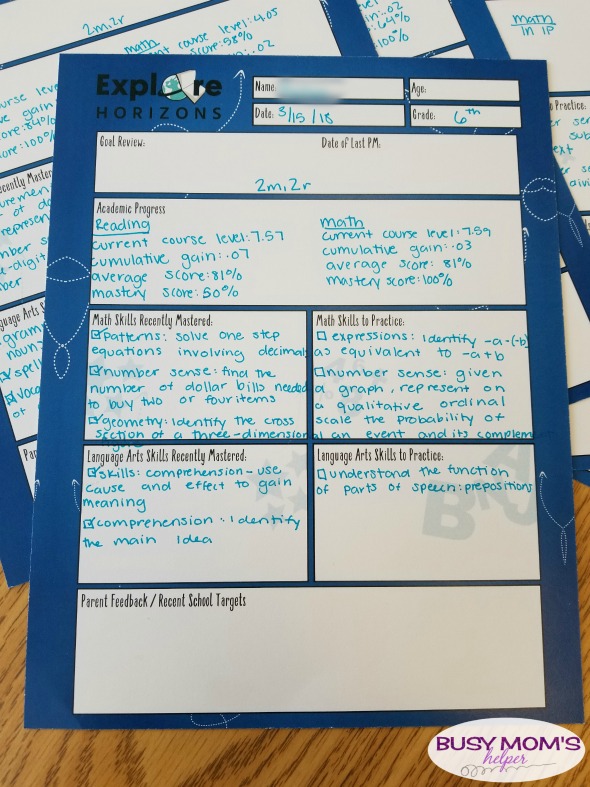 2m, 2r
math
course level: 4.05
score: 58%
.02
.02
64%
100%
math
in IP
Explore
HORIZONS
Name:
Age:
Date: 3/15/18
Grade: 6th
Goal Review:
Date of Last PM:
2m, 2r
Academic Progress
Reading
current course level: 7.57
cumulative gain: .07
average score: 81%
mastery score: 50%
math
current course level: 7.59
cumulative gain: .03
average score: 81%
mastery score: 100%
Math Skills Recently Mastered:
patterns: solve one step
equations involving decimals
number sense: find the
number of dollar bills needed
to buy two or four items
geometry: identify the cross
section of a three-dimensional
figure
Math Skills to Practice:
expressions: identify -a-(-b)
as equivalent to -a+b
number sense: given
a graph, represent on
a qualitative ordinal
scale the probability of
an event and its complement
Language Arts Skills Recently Mastered:
skills: comprehension - use
cause and effect to gain
meaning
comprehension: identify
the main idea
Language Arts Skills to Practice:
understand the function
of parts of speech: prepositions
Parent Feedback / Recent School Targets
BUSY MOM'S
helper